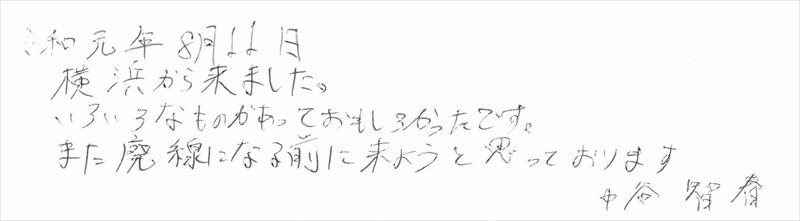 令和元年8月11日
横浜から来ました。
いろいろなものがあっておもしろかったです。
また廃線になる前に来ようと思っております
中谷 智春